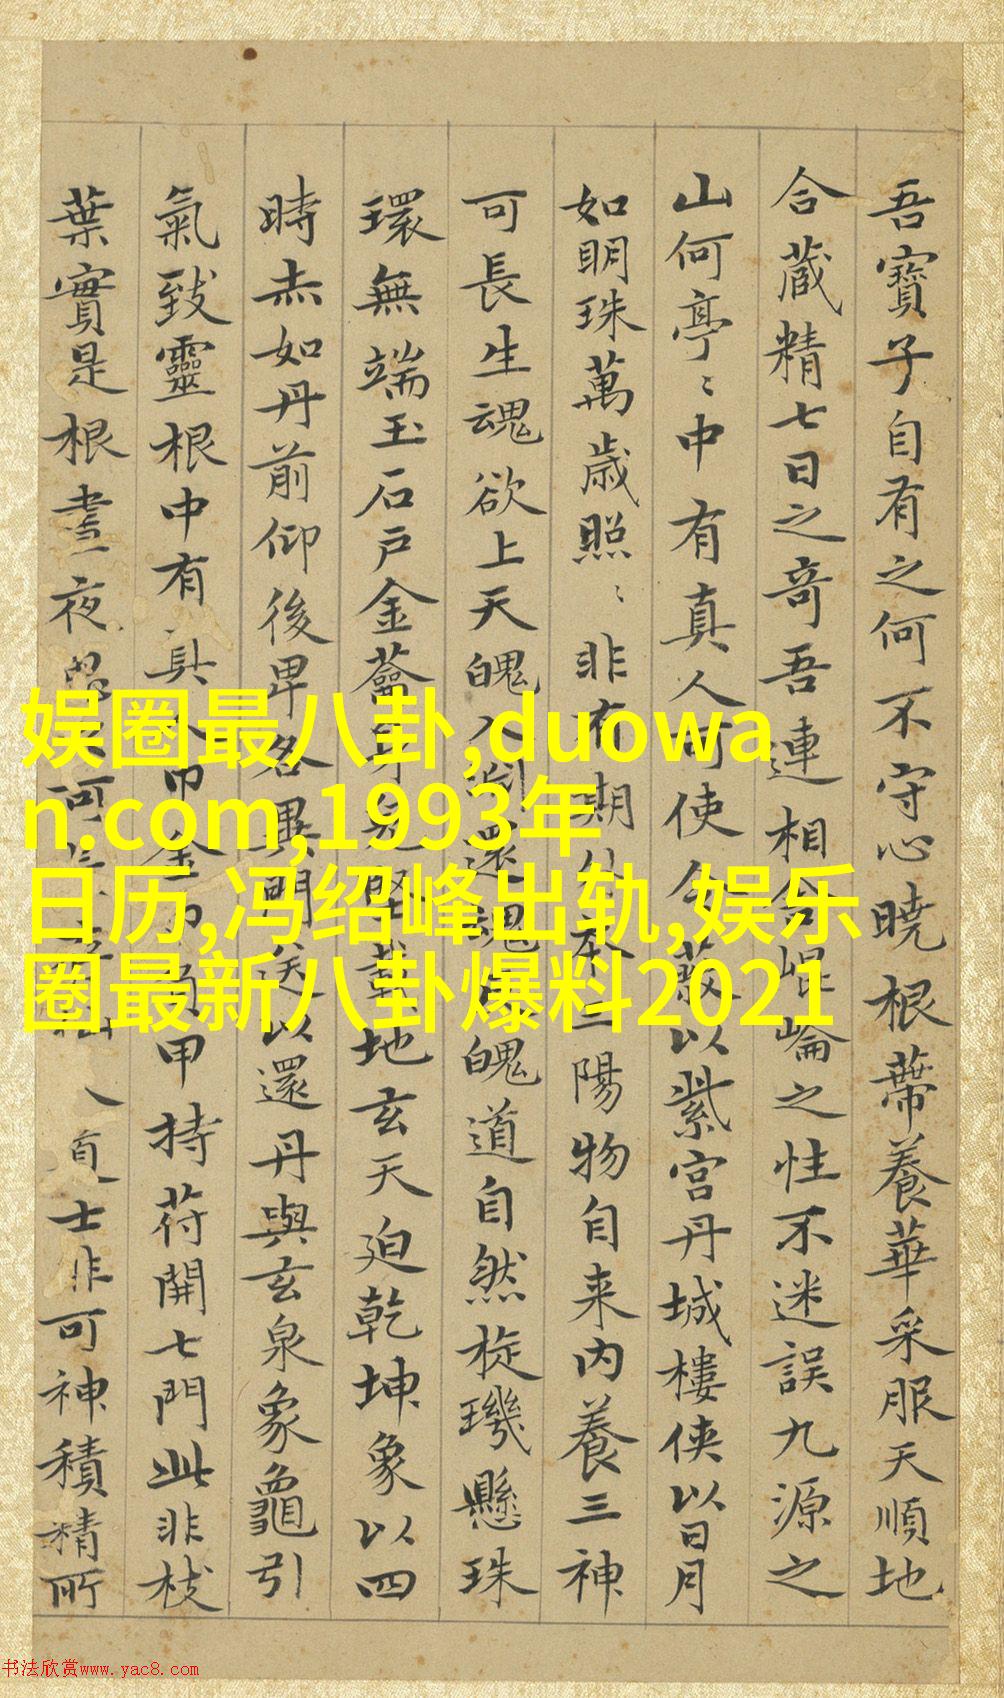 吾寶子自有之何不守心曉根蒂養華采服天順地
合藏精七日之奇吾連相合崐崘之性不迷誤九源之
山何亭〻中有真人可使令蔽以紫宮丹城樓俠以日月
如明珠萬歲照〻非有期外本三陽物自来内養三神
可長生魂欲上天魄入淵還魂魄道自然旋璣懸珠
環無端玉石戶金籥身堅載地玄天迫乾坤象以四
時赤如丹前仰後卑各異門送以還丹與玄泉象龜引
氣致靈根中有真人巾金巾負甲持苻開七門此非枝
葉實是根晝夜思可真士非可神積精所
娱圈最八卦,duowa
n.com,1993年
日历,冯绍峰出轨,娱乐
圈最新八卦爆料2021
书法欣赏www.yac8.com